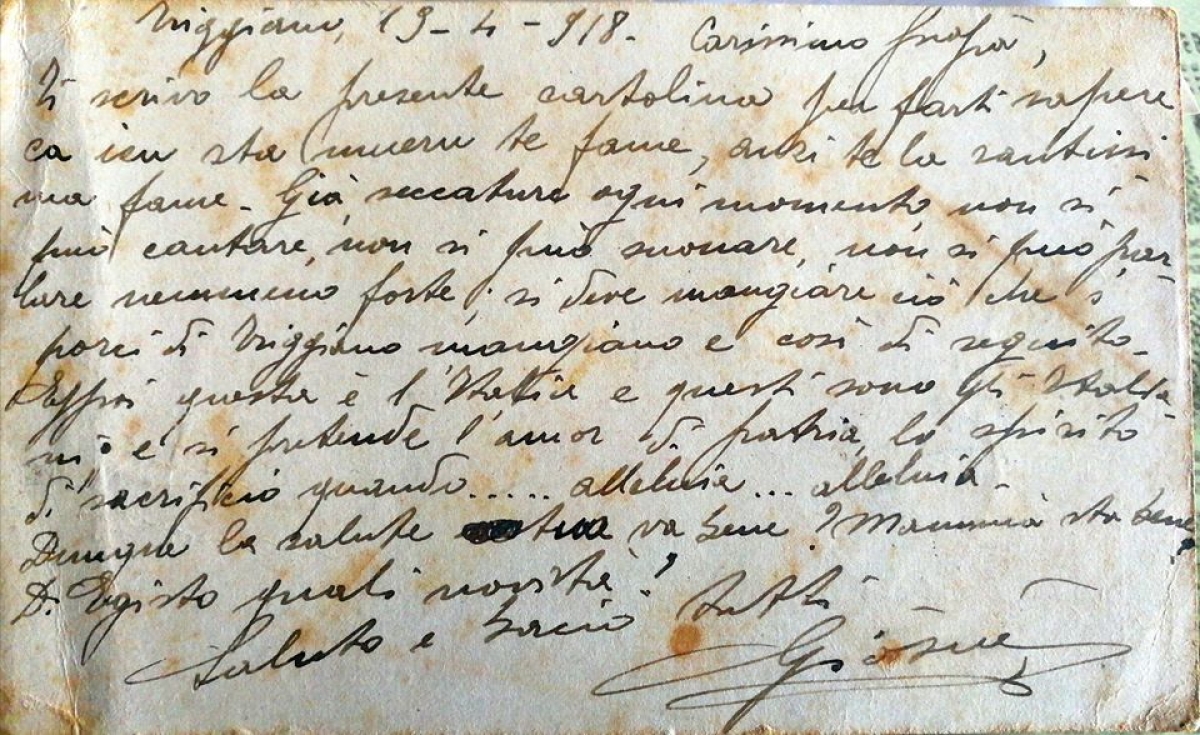 Viggiano, 19-4-918. Carissimo papà,
Ti scrivo la presente cartolina per farti sapere
ca ieu sta mueru te fame, anzi te la santissi
ma fame. Già, seccature ogni momento, non si
può cantare, non si può suonare, non si può par-
lare nemmeno forte; si deve mangiare ciò che i
porci di Viggiano mangiano e così di seguito.
Eppoi questa è l'Italia e questi sono gli Italia
ni e si pretende l'amor di patria, lo spirito
di sacrificio quando..... alleluia... alleluia.
Dunque la salute tua va bene? Mammà sta bene?
Di Egisto quali novità?
Saluto e bacio tutti
Giosuè